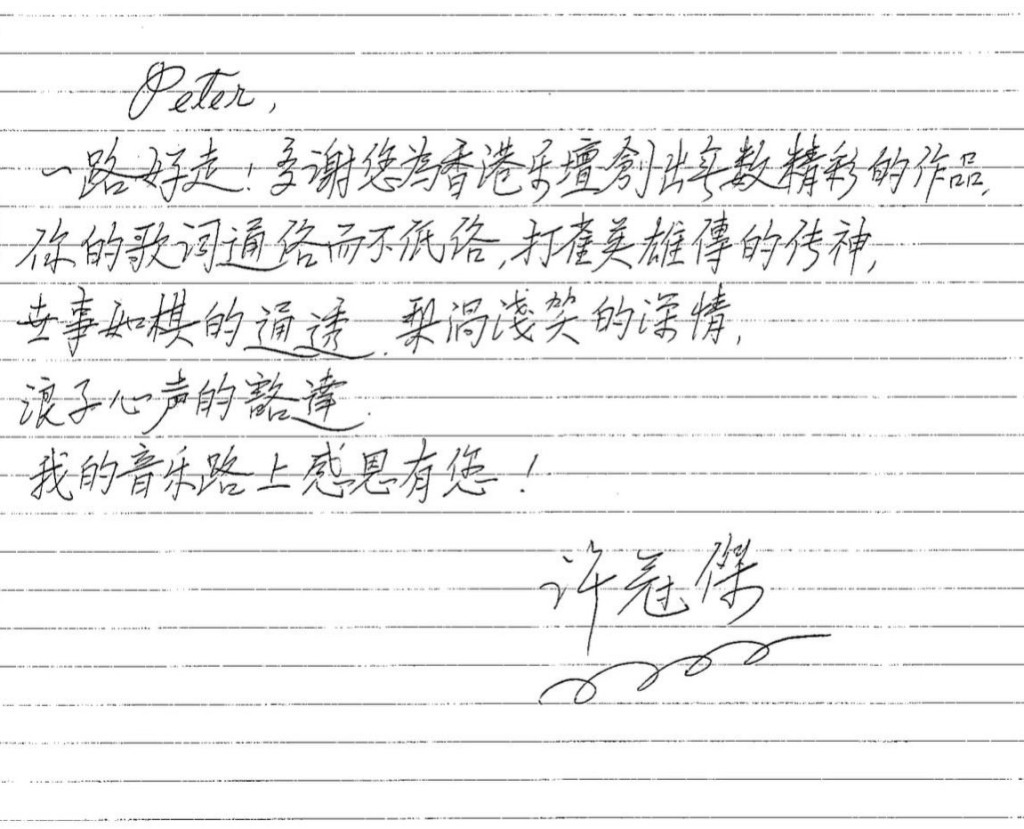 Peter,
一路好走！多谢您為香港乐壇創出无数精彩的作品,
你的歌词通俗而不低俗,打雀英雄傳的传神,
世事如棋的通透.梨涡淺笑的深情,
浪子心声的豁達.
我的音乐路上感恩有您！
许冠傑